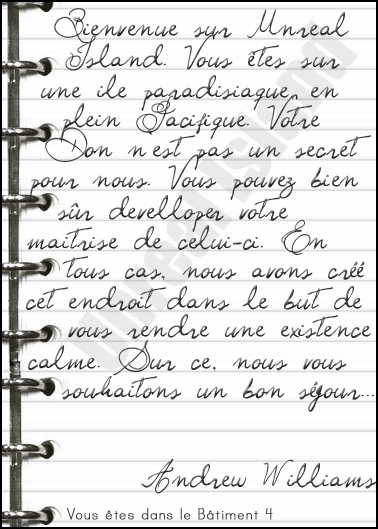 Bienvenue sur Unreal
Island. Vous êtes sur
une ile paradisiaque, en
plein Pacifique. Vôtre
Don n'est pas un secret
pour nous. Vous pouvez bien
sûr develloper votre
maitrise de celui-ci. En
tous cas, nous avons créé
cet endroit dans le but de
vous rendre une existence
calme. Sur ce, nous vous
souhaitons un bon séjour...
Andrew Williams
Vous êtes dans le Bâtiment 4
Unreal Island